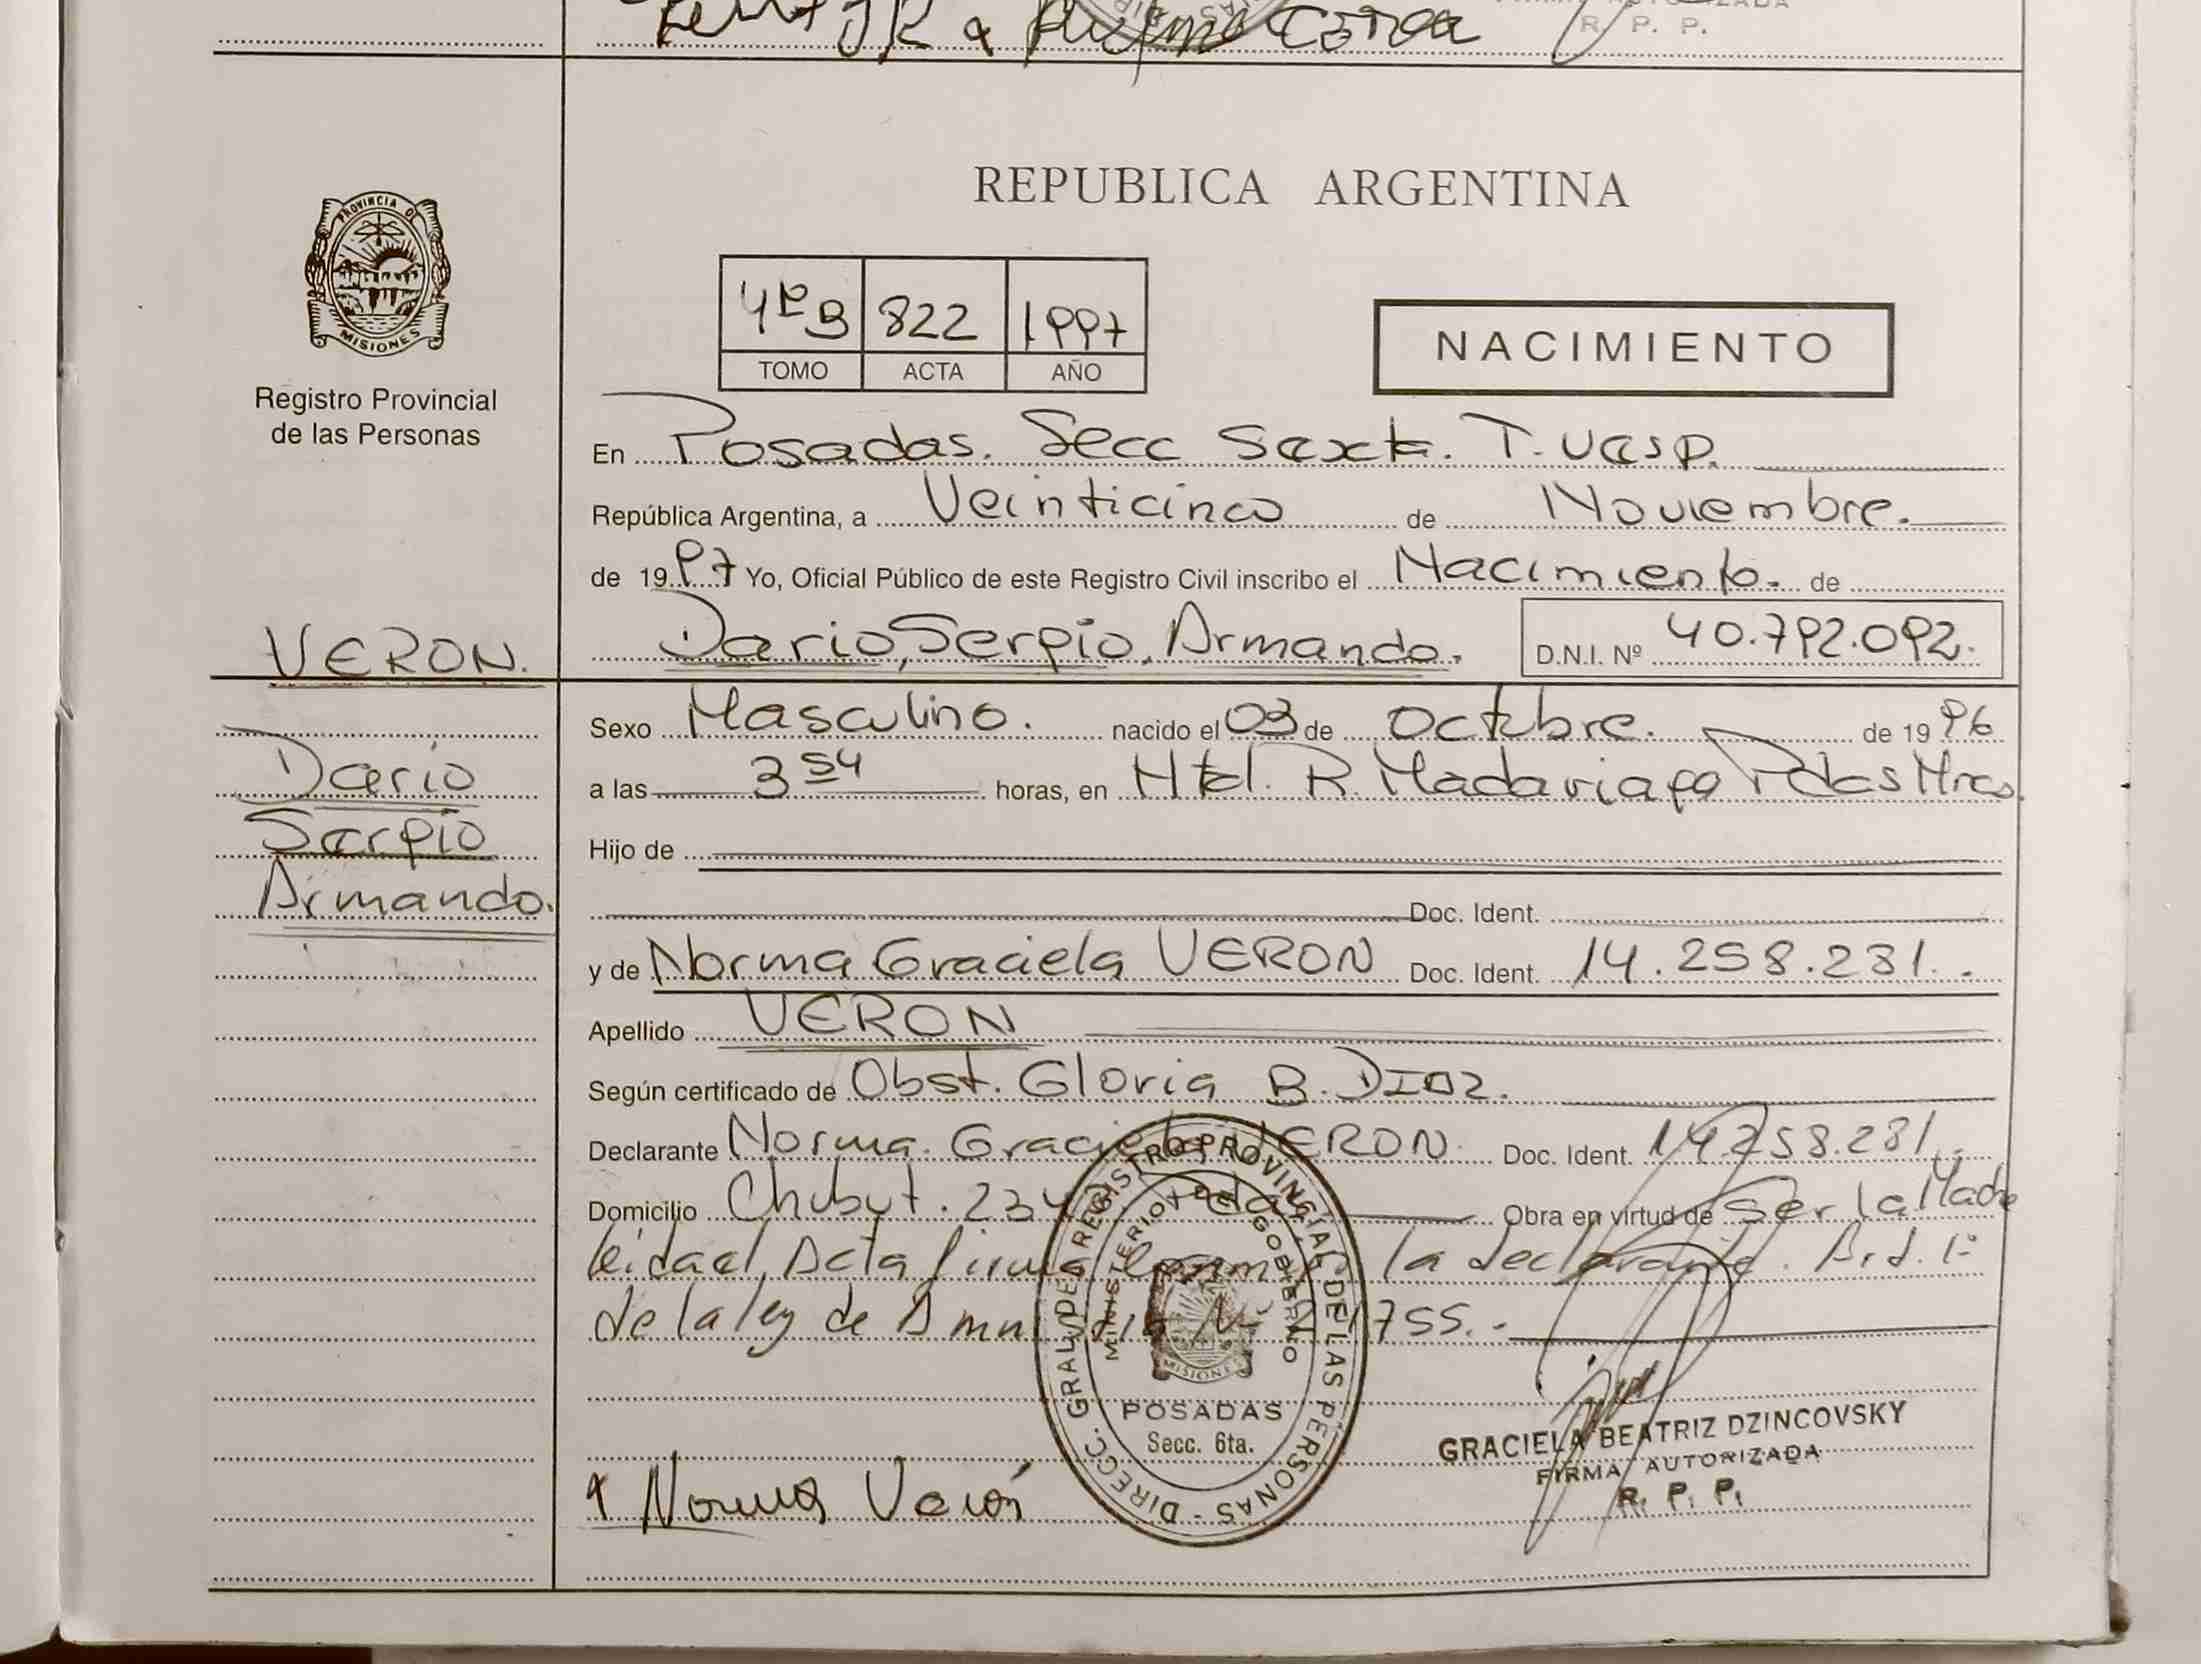 R. P. P.
PROVINCIA DE
MISIONES
Registro Provincial
de las Personas
REPUBLICA ARGENTINA
822 1997
TOMO ACTA AÑO
NACIMIENTO
En Posadas. Secc Sexta. T. Vesp.
República Argentina, a Veinticinco de Noviembre.
de 1997 Yo, Oficial Público de este Registro Civil inscribo el Nacimiento. de
VERON.
Dario, Sergio, Armando. D.N.I. Nº 40.792.092.
Sexo Masculino. nacido el 03 de Octubre. de 1996
Dario
a las 3 54 horas, en Htal. R. Madariaga Pdas Mnes.
Sergio
Hijo de
Armando.
Doc. Ident.
y de Norma Graciela VERON Doc. Ident. 14.258.281.
Apellido VERON
Según certificado de Obst. Gloria B. DIAZ.
Declarante Norma. Graciela VERON. Doc. Ident. 14.258.281.
Domicilio Chubut. Obra en virtud de Ser la Madre
leida el Acta firma la declarante. Art. 1º
de la ley de Amnistia
x Norma Verón
DIRECC. GRAL. DE REGISTRO PROVINCIAL DE LAS PERSONAS
MINISTERIO DE GOBIERNO
MISIONES
POSADAS
Secc. 6ta.
GRACIELA BEATRIZ DZINCOVSKY
FIRMA AUTORIZADA
R. P. P.